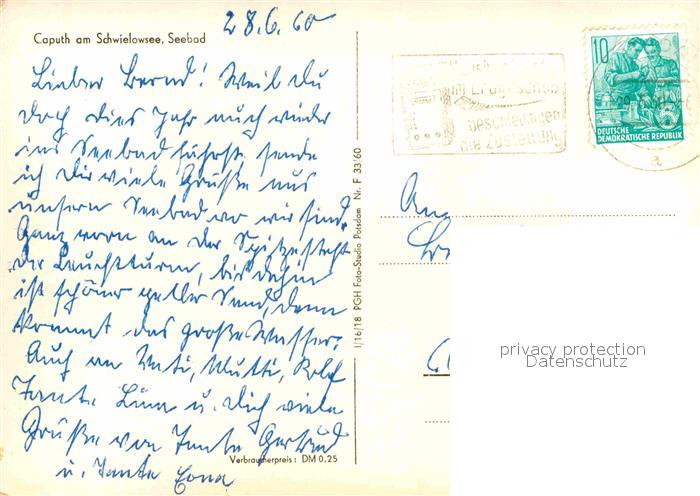 28.6.60
Caputh am Schwielowsee, Seebad
Lieber Bernd! Weil du
doch dies Jahr auch wieder
ins Seebad fährst sende
ich Dir viele Grüße aus
unserm Seebad wo wir sind.
Ganz vorn an der Spitze steht
der Leuchturm, bis dahin
ist schöner gelber Sand, dann
kommt das große Wasser.
Auch an Vati, Mutti, Rolf
Tante u. Dich viele
Grüße von Tante Gertrud
u. Tante
Verbraucherpreis: DM 0,25
I/16/18 PGH Foto-Studio Potsdam Nr. F 33/60
im Erdgeschoß
beschleunigen
die Zustellung
10
DEUTSCHE
DEMOKRATISCHE REPUBLIK
a
An
privacy protection
Datenschutz